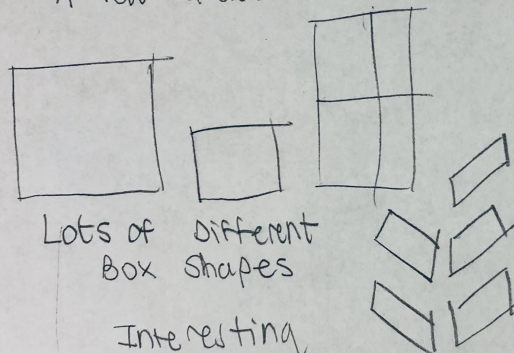 Lots of Different
Box Shapes
Interesting